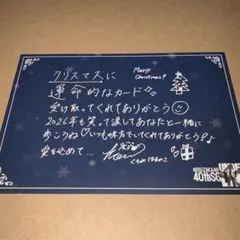 クリスマスに
Merry
Christmas!
運命的なカード
受け取ってくれてありがとう
2026年も笑って涙してあなたと一緒に
歩こうね いつも味方でいてくれてありがとう
愛を込めて...
NOGIZAKA46
40thSG